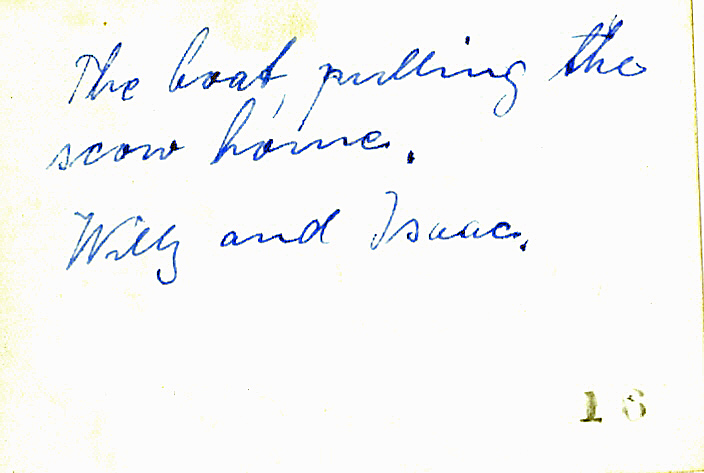 The boat, pulling the
scow home.
Willy and Isaac.
16